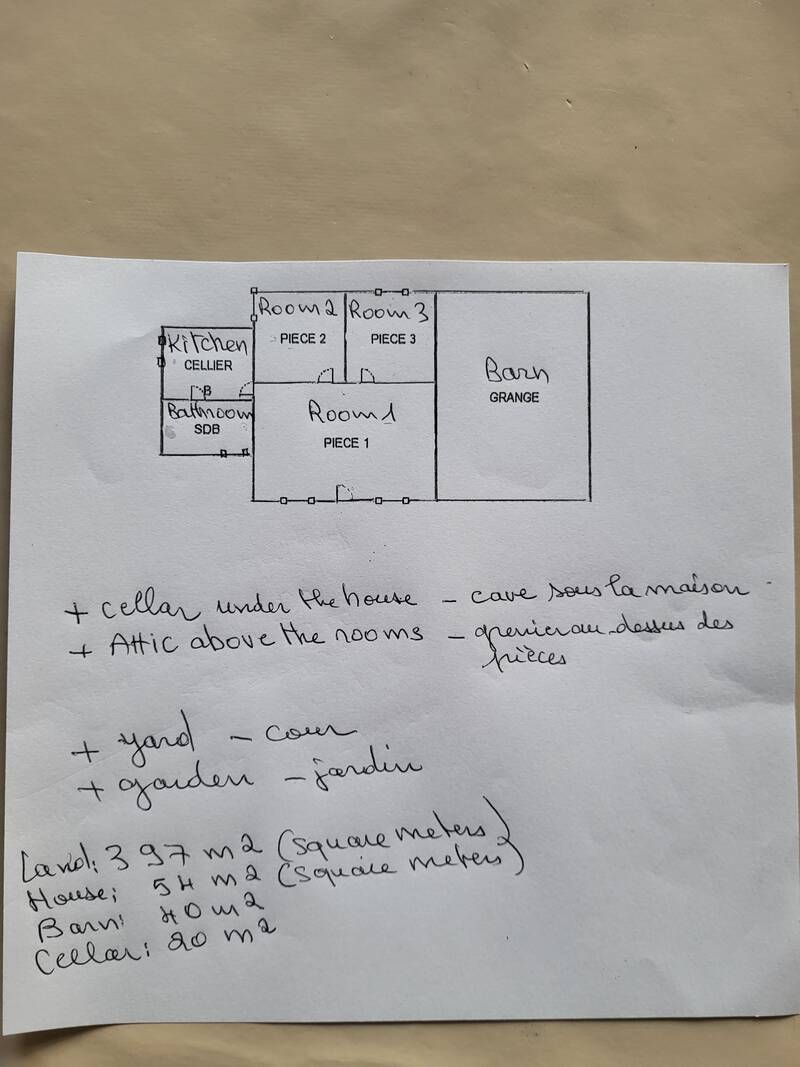 Room 2
PIECE 2
Room 3
PIECE 3
Kitchen
CELLIER
B
Bathroom
SDB
Room 1
PIECE 1
Barn
GRANGE
+ cellar under the house - cave sous la maison
+ Attic above the rooms - grenier au-dessus des
pièces
+ yard - cour
+ garden - jardin
Land: 397 m2 (square meters)
House: 54 m2 (square meters)
Barn: 40 m2
Cellar: 20 m2